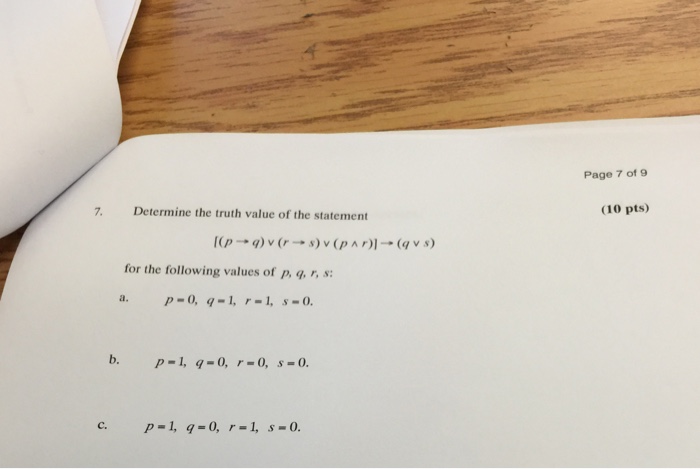 Page 7 of 9
7. Determine the truth value of the statement (10 pts)
[(p → q) ∨ (r → s) ∨ (p ∧ r)] → (q ∨ s)
for the following values of p, q, r, s:
a. p = 0, q = 1, r = 1, s = 0.
b. p = 1, q = 0, r = 0, s = 0.
c. p = 1, q = 0, r = 1, s = 0.